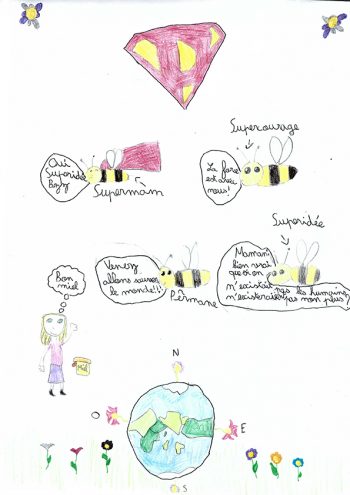 Oui
Superidé
Bzz
Supermam
Supercourage
La force
est avec
nous!
Superidée
Venez
allons sauver
le monde!!!
Permane
Maman
bien vrai
que si on
n'existait pas les humains
n'existeraient pas non plus?
Bon
miel
Miel
N
O
E
S